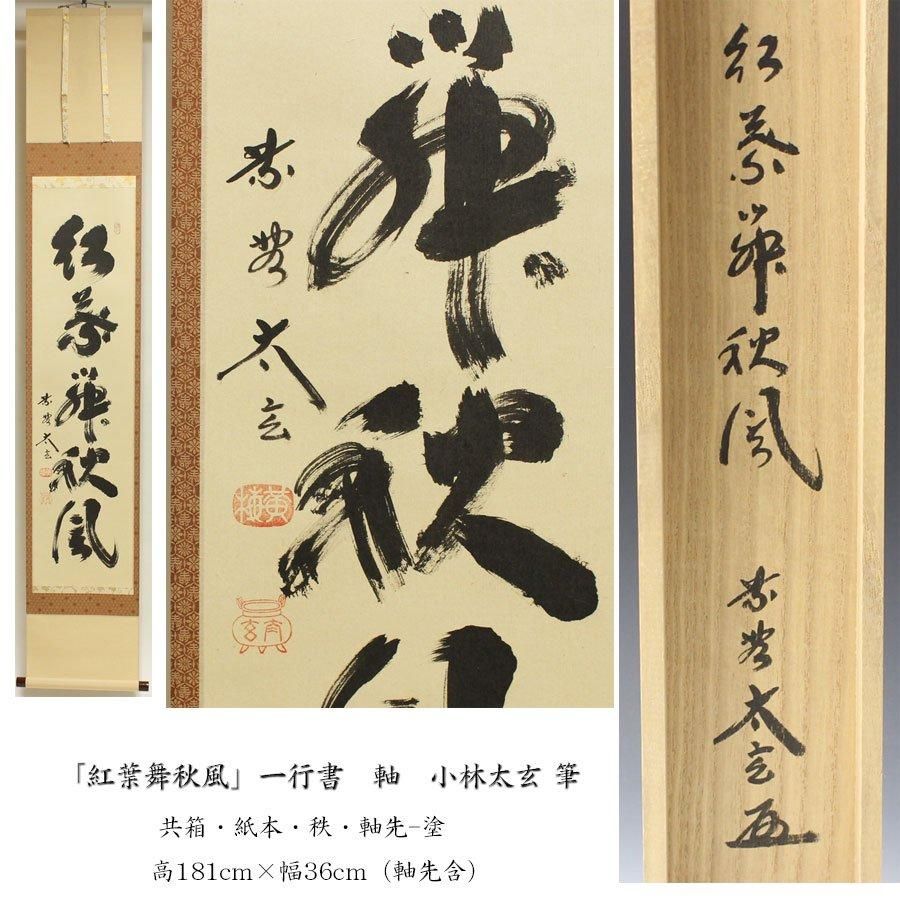 紅葉舞秋風
紫野太玄
舞秋
紫野
太玄
黄梅
紅葉舞秋風
紫野太玄
「紅葉舞秋風」一行書　軸　小林太玄 筆
共箱・紙本・秩・軸先-塗
高181cm×幅36cm（軸先含）